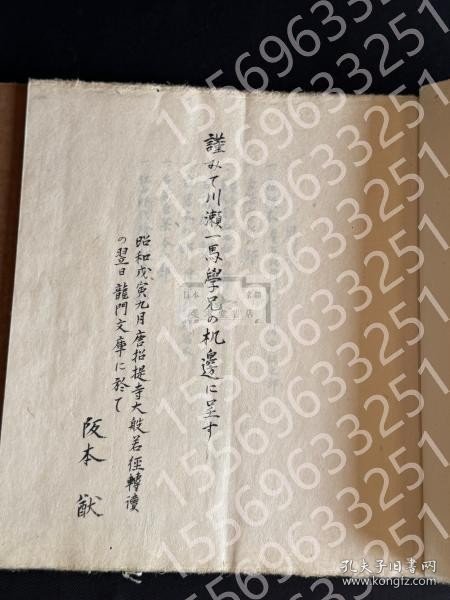 謹みて川瀬一馬學兄の机邊に呈す
昭和戊寅九月唐招提寺大般若経轉讀
の翌日龍門文庫に於て
阪本猷
孔夫子旧书网
www.kongfz.com
15569633251